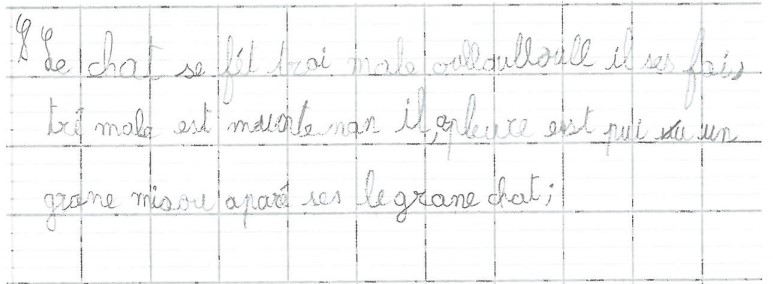 Le chat se fêt trai male oulloulloull il ses fais
tré male est mourte nan il, apleure est pui vu un
grane miaou aparé ses le grane chat;